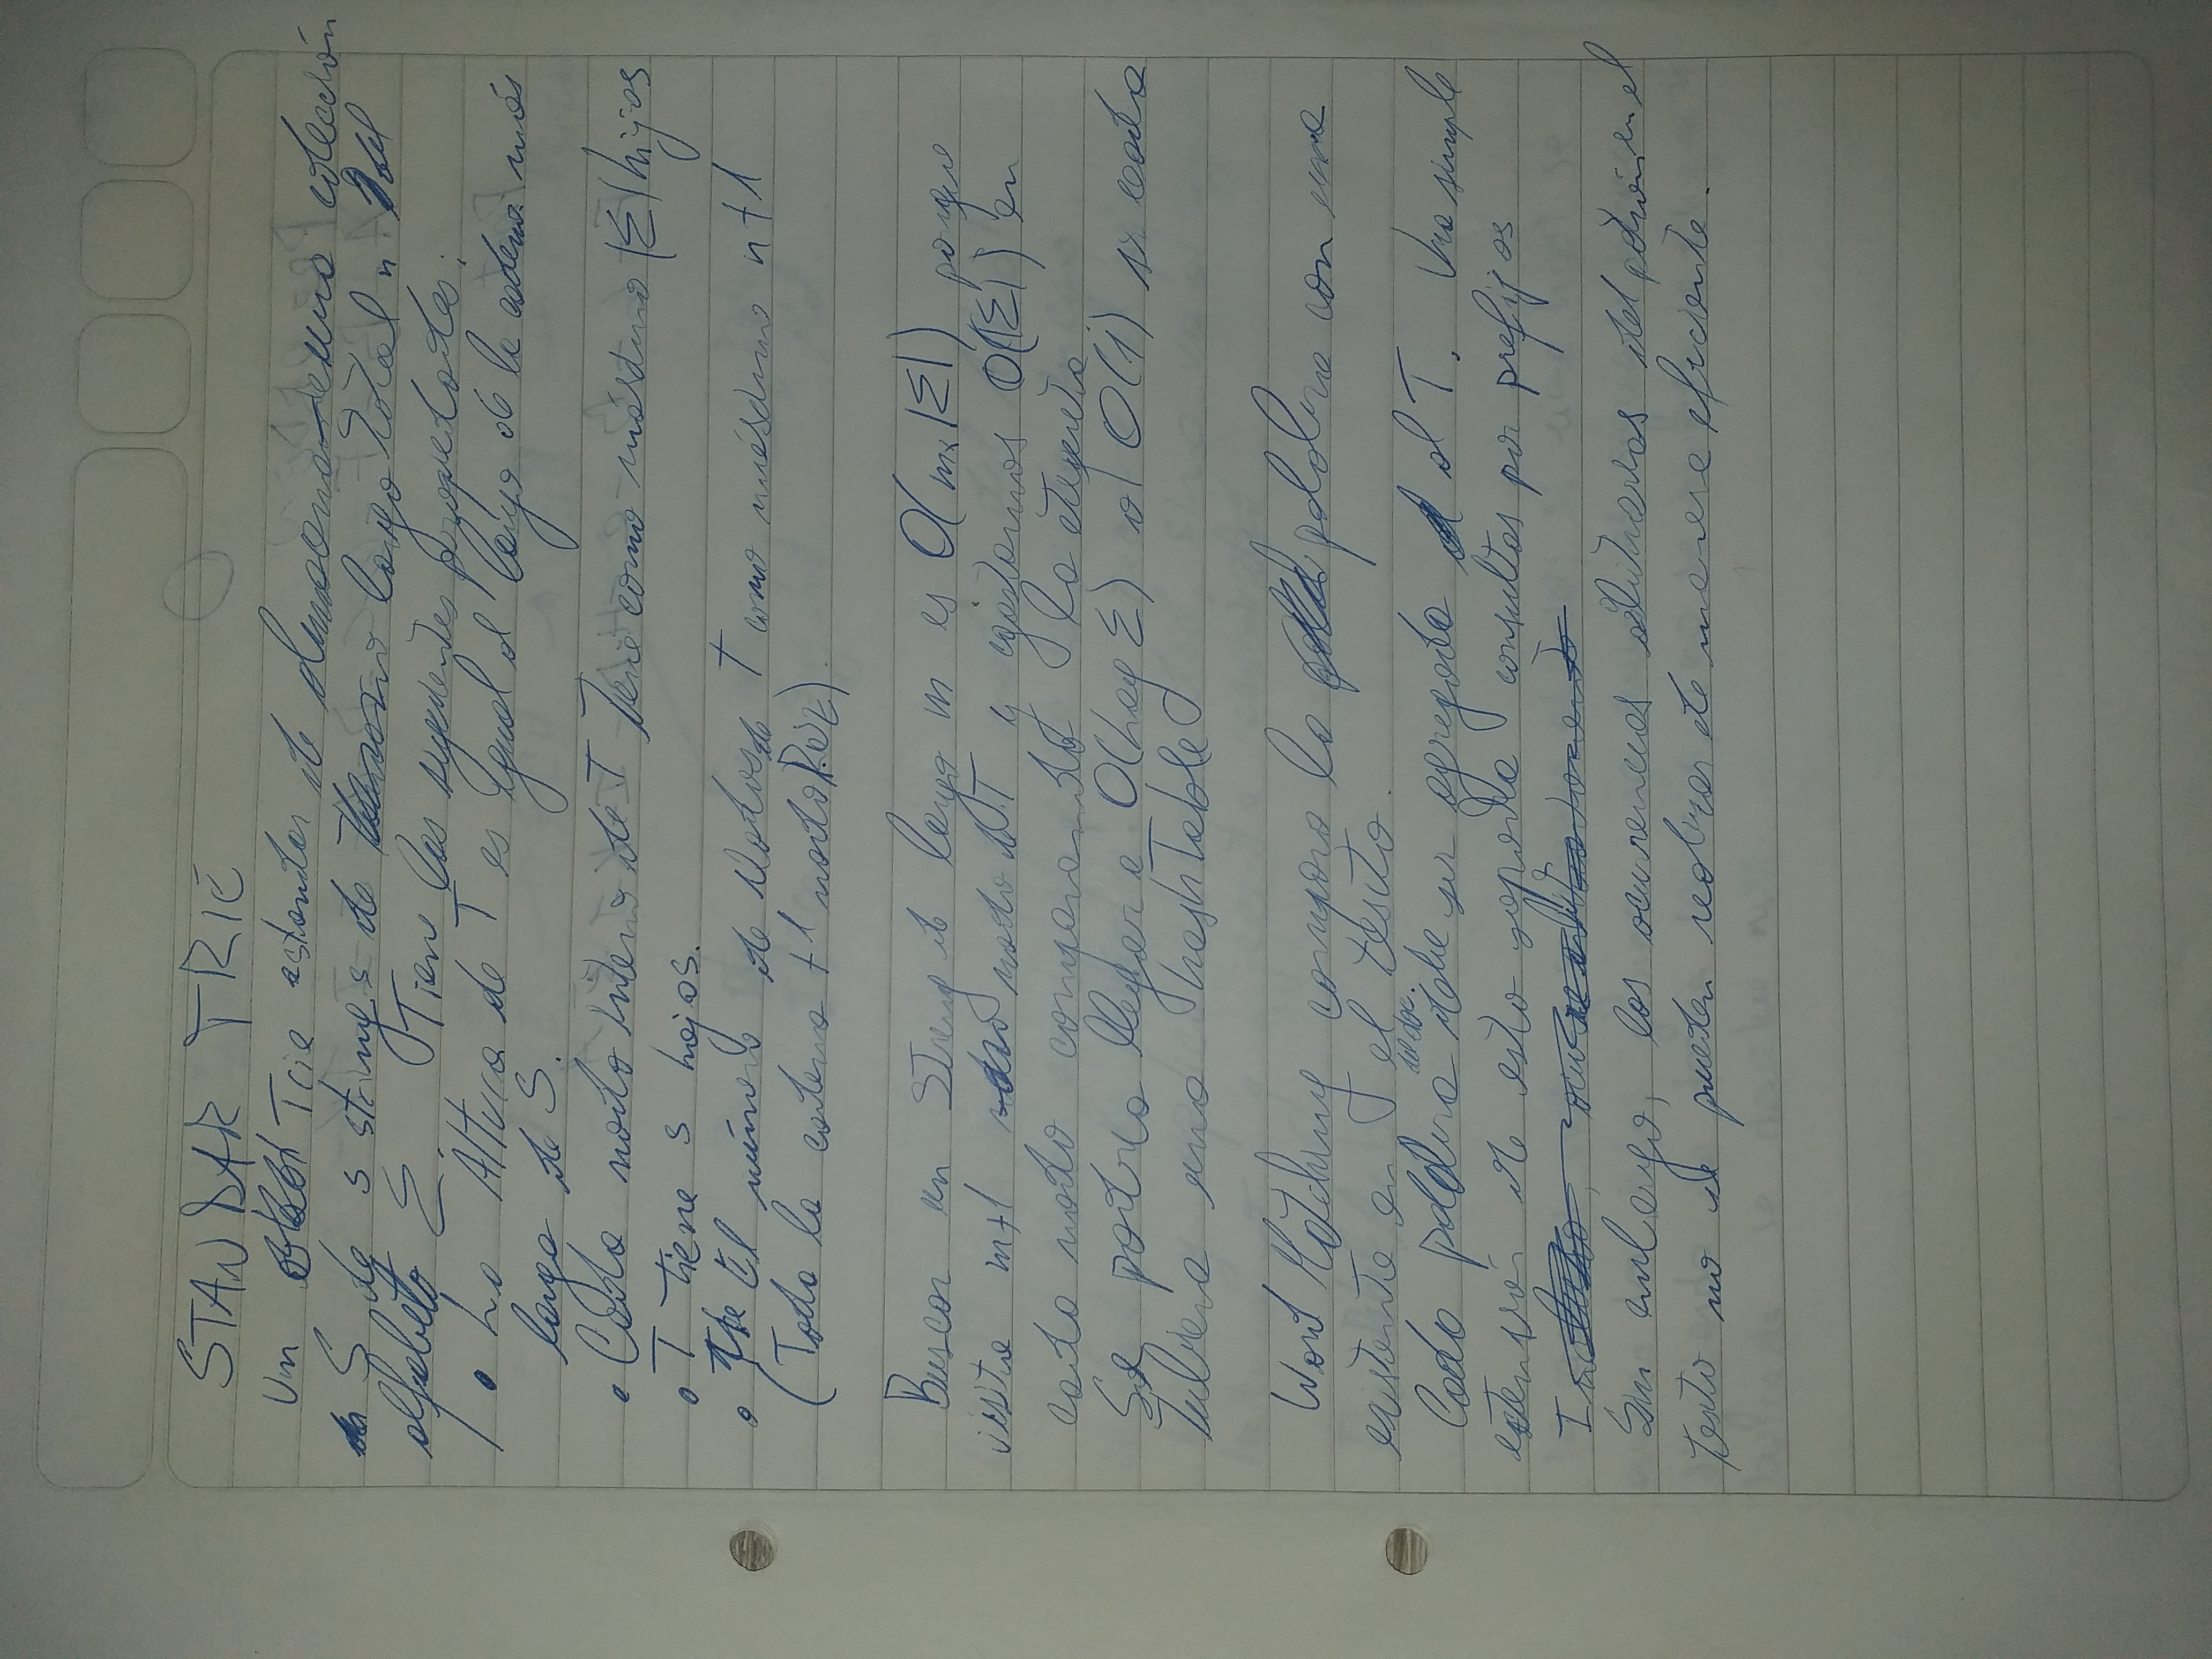 STANDAR TRIE
Un Trie estandar de una colección
S de s strings de largo total n del
alfabeto Σ. Tiene las siguientes propiedades:
• La Altura de T es igual al largo de la cadena más
larga de S.
• Cada nodo interno de T tiene como máximo |Σ| hijos
• T tiene s hojas.
• El número de Nodos de T como máximo n+1
(Toda la cadena +1 nodo Raíz).
Buscar un String de largo m es O(m×|Σ|) porque
visita m+1 nodo de T y gastamos O(|Σ|) en
cada nodo comparando la etiqueta.
Se podría llegar a O(Log Σ) o O(1) si cada
tubiera una hashTable
Word Matching compara la palabra con una
existente en el texto.
Cada palabra del doc. debe ser agregada al T. Una simple
extensión de esto soporta consultas por prefijos
Sin embargo, las ocurrencias arbitrarias del patrón en el
texto no se pueden realizar de manera eficiente.